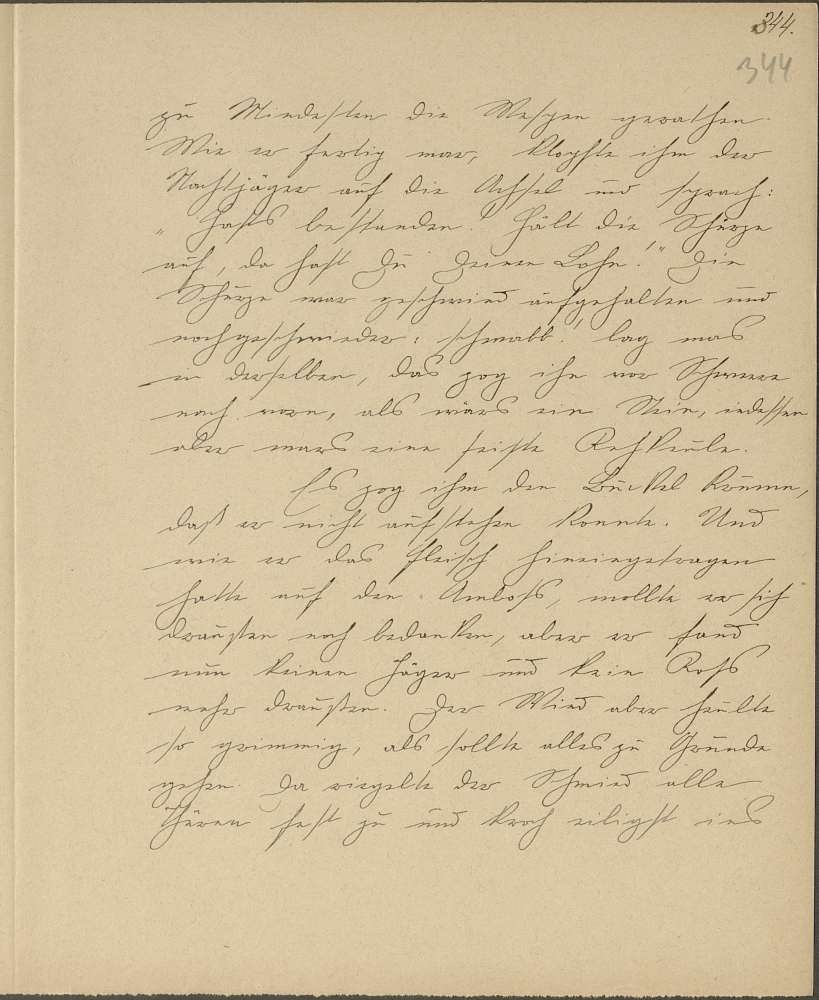 344.
344
zu Mindesten die Wespen gerathen.
Wie er fertig war, klopfte ihm der
Nachtjäger auf die Achsel und sprach:
„Hasts bestanden! Hält die Schürze
auf, da hast Du Deinen Lohn!" Die
Schürze war geschwind aufgehalten und
nochgeschwieder: schwabb! lag was
in derselben, das zog ihn vor Schwere
nach vorn, als wärs ein Stein, indessen
aber wars eine feiste Rehkeule.
Es zog ihm den Buckel krumm,
daß er nicht aufstehen konnte. Und
wie er das Fleisch hineingetragen
hatte auf den Amboss, wollte er sich
draußen noch bedanken, aber er fand
nun keinen Jäger und kein Ross
mehr draußen. Der Wind aber heulte
so grimmig, als sollte alles zu Grunde
gehen. Da riegelte der Schmied alle
Thüren fest zu und kroch eiligst ins